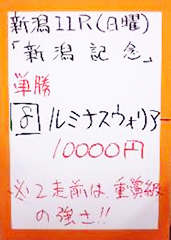 新潟11R(日曜)
「新潟記念」
単勝
8 ルミナスウォリアー
10000円
※2走前は重賞級
の強さ!!